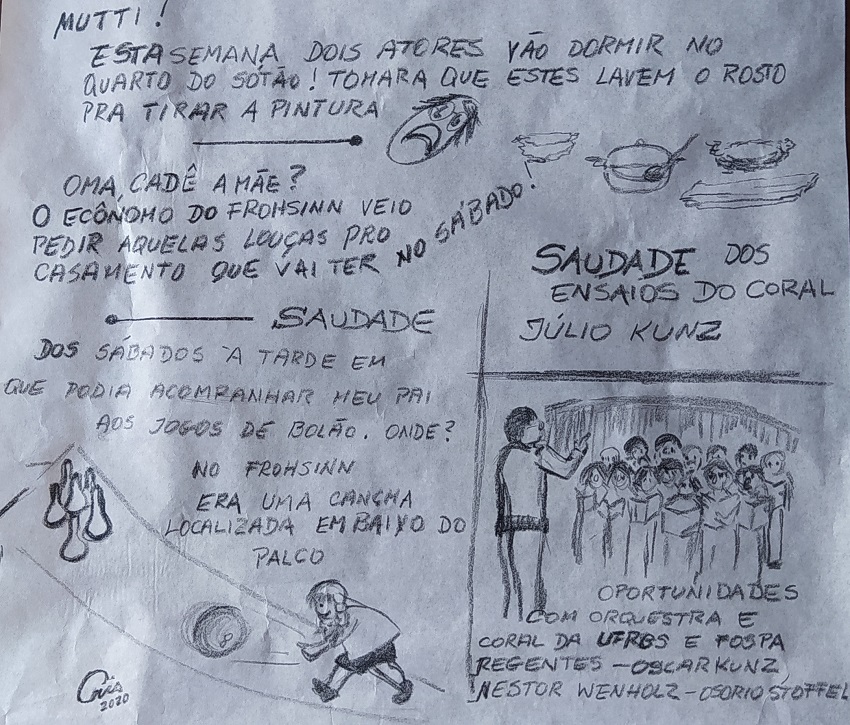 MUTTI!
ESTA SEMANA DOIS ATORES VÃO DORMIR NO
QUARTO DO SÓTÃO! TOMARA QUE ESTES LAVEM O ROSTO
PRA TIRAR A PINTURA
OMA, CADÊ A MÃE?
O ECÔNOMO DO FROHSINN VEIO
PEDIR AQUELAS LOUÇAS PRO
CASAMENTO QUE VAI TER NO SÁBADO!
SAUDADE
DOS SÁBADOS À TARDE EM
QUE PODIA ACOMPANHAR MEU PAI
AOS JOGOS DE BOLÃO. ONDE?
NO FROHSINN
ERA UMA CANCHA
LOCALIZADA EMBAIXO DO
PALCO
8
Cris
2020
SAUDADE DOS
ENSAIOS DO CORAL
JÚLIO KUNZ
OPORTUNIDADES
COM ORQUESTRA E
CORAL DA UFRGS E FOSPA
REGENTES - OSCAR KUNZ
NESTOR WENHOLZ - OSORIO STOFFEL